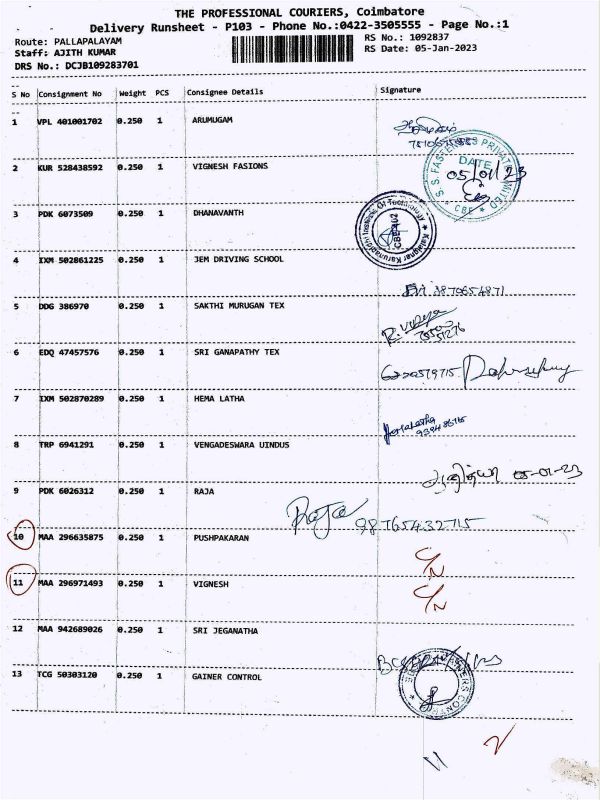 THE PROFESSIONAL COURIERS, Coimbatore
Delivery Runsheet - P103 - Phone No.:0422-3505555 - Page No.:1
Route: PALLAPALAYAM RS No.: 1092837
Staff: AJITH KUMAR RS Date: 05-Jan-2023
DRS No.: DCJB109283701
S No Consignment No Weight PCS Consignee Details Signature
1 VPL 401001702 0.250 1 ARUMUGAM
2 KUR 528438592 0.250 1 VIGNESH FASIONS
S. S. FASTENERS PRIVATE LIMITED
DATE
05/01/23
* CBE *
3 PDK 6073509 0.250 1 DHANAVANTH
Kalaignar Karunanidhi Institute Of Technology
4 IXM 502861225 0.250 1 JEM DRIVING SCHOOL
5 DDG 386970 0.250 1 SAKTHI MURUGAN TEX
R. Vidya
6 EDQ 47457576 0.250 1 SRI GANAPATHY TEX
7 IXM 502870289 0.250 1 HEMA LATHA
Hemalatha
8 TRP 6941291 0.250 1 VENGADESWARA UINDUS
05-01-23
9 PDK 6026312 0.250 1 RAJA
Raja 98765432715
10 MAA 296635875 0.250 1 PUSHPAKARAN C/N
11 MAA 296971493 0.250 1 VIGNESH C/N
12 MAA 942689026 0.250 1 SRI JEGANATHA
13 TCG 50303120 0.250 1 GAINER CONTROL
11 2